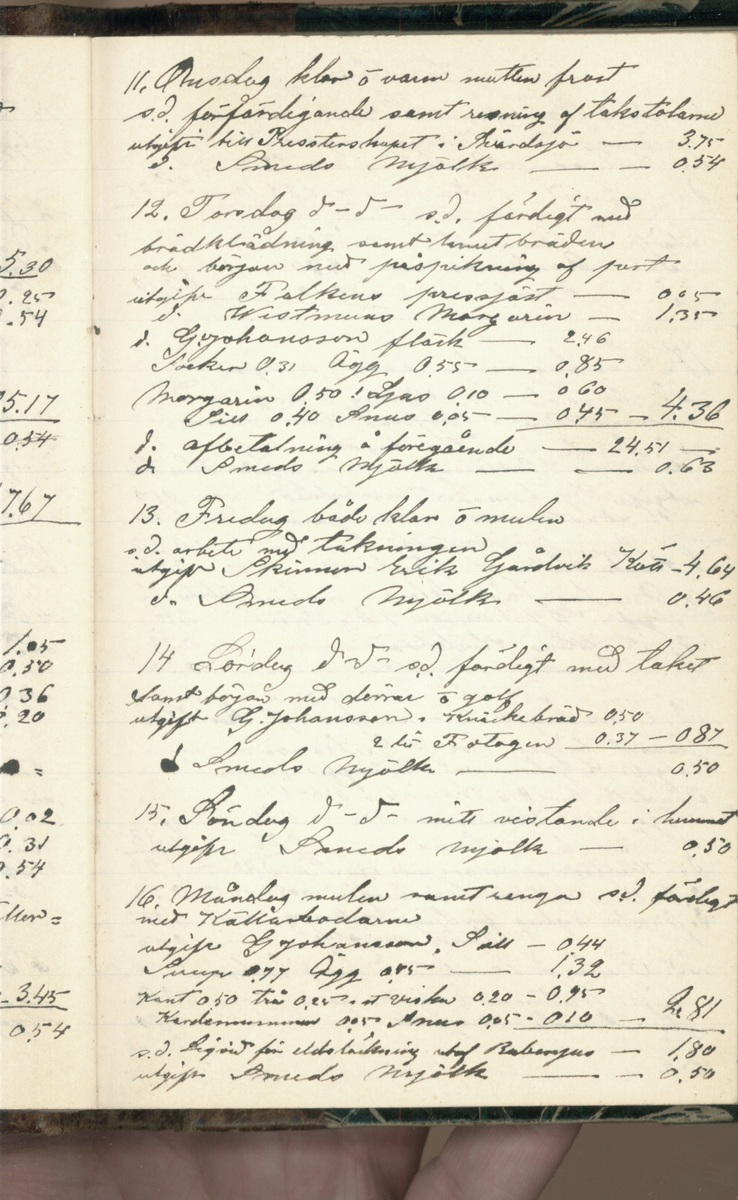 5.30
0.25
0.54
5.17
0.54
7.67
1.05
0.50
0.36
0.20
0.02
0.31
0.54
3.45
0.54
11. Onsdag klar o varm natten frost
s.d. förfärdigande samt resning af takstolarne
utgift till i — 3.75
d. Smeds Mjölk — — 0.54
12. Torsdag d-d- s.d. färdigt med
brädklädning samt bräden
och början med påspikning af
utgift Falkens pressjäst — 0.05
d. Wistmans Margarin — 1.35
d. G. Johansson fläsk — 2.46
Socker 0.31 Ägg 0.55 — 0.85
Margarin 0.50 Ljus 0.10 — 0.60
Sill 0.40 Snus 0.05 — 0.45 — 4.36
d. afbetalning å föregående — 24.51 —
d. Smeds Mjölk — — 0.63
13. Fredag både klar o mulen
s.d. arbete med täkningen
utgift Skinnar Erik Gårdvik Kött - 4.64
d. Smeds Mjölk — 0.46
14 Lördag d-d- s.d. färdigt med taket
samt början med dörrar o golf
utgift G. Johansson. Knäckebröd 0.50
2 lit Fotogen 0.37 - 0.87
d Smeds Mjölk — 0.50
15. Söndag d-d- mitt vistande i hemmet
utgift Smeds Mjölk — 0.50
16. Måndag mulen samt s.d. färdigt
med Källarbodarne
utgift G Johansson, Sill - 0.44
Sirup 0.77 Ägg — 1.32
0.50 0.25 0.20 - 0.95
Kardemumman 0.05 Snus 0.05 - 0.10 — 2.81
s.d. för eldsläckning — 1.80
utgift Smeds Mjölk — — 0.50